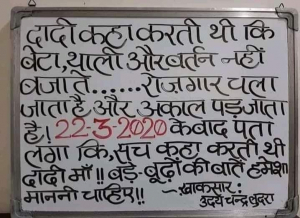 दादी कहा करती थी कि
बेटा, थाली और बर्तन नहीं
बजाते...... रोजगार चला
जाता है, और अकाल पड़ जाता
है! 22-3-2020 के बाद पता
लगा कि, सच कहा करती थी
दादी माँ!! बड़े-बूढ़ों की बातें हमेशा
माननी चाहिए!!
खाकसार:
उदय चन्द्र